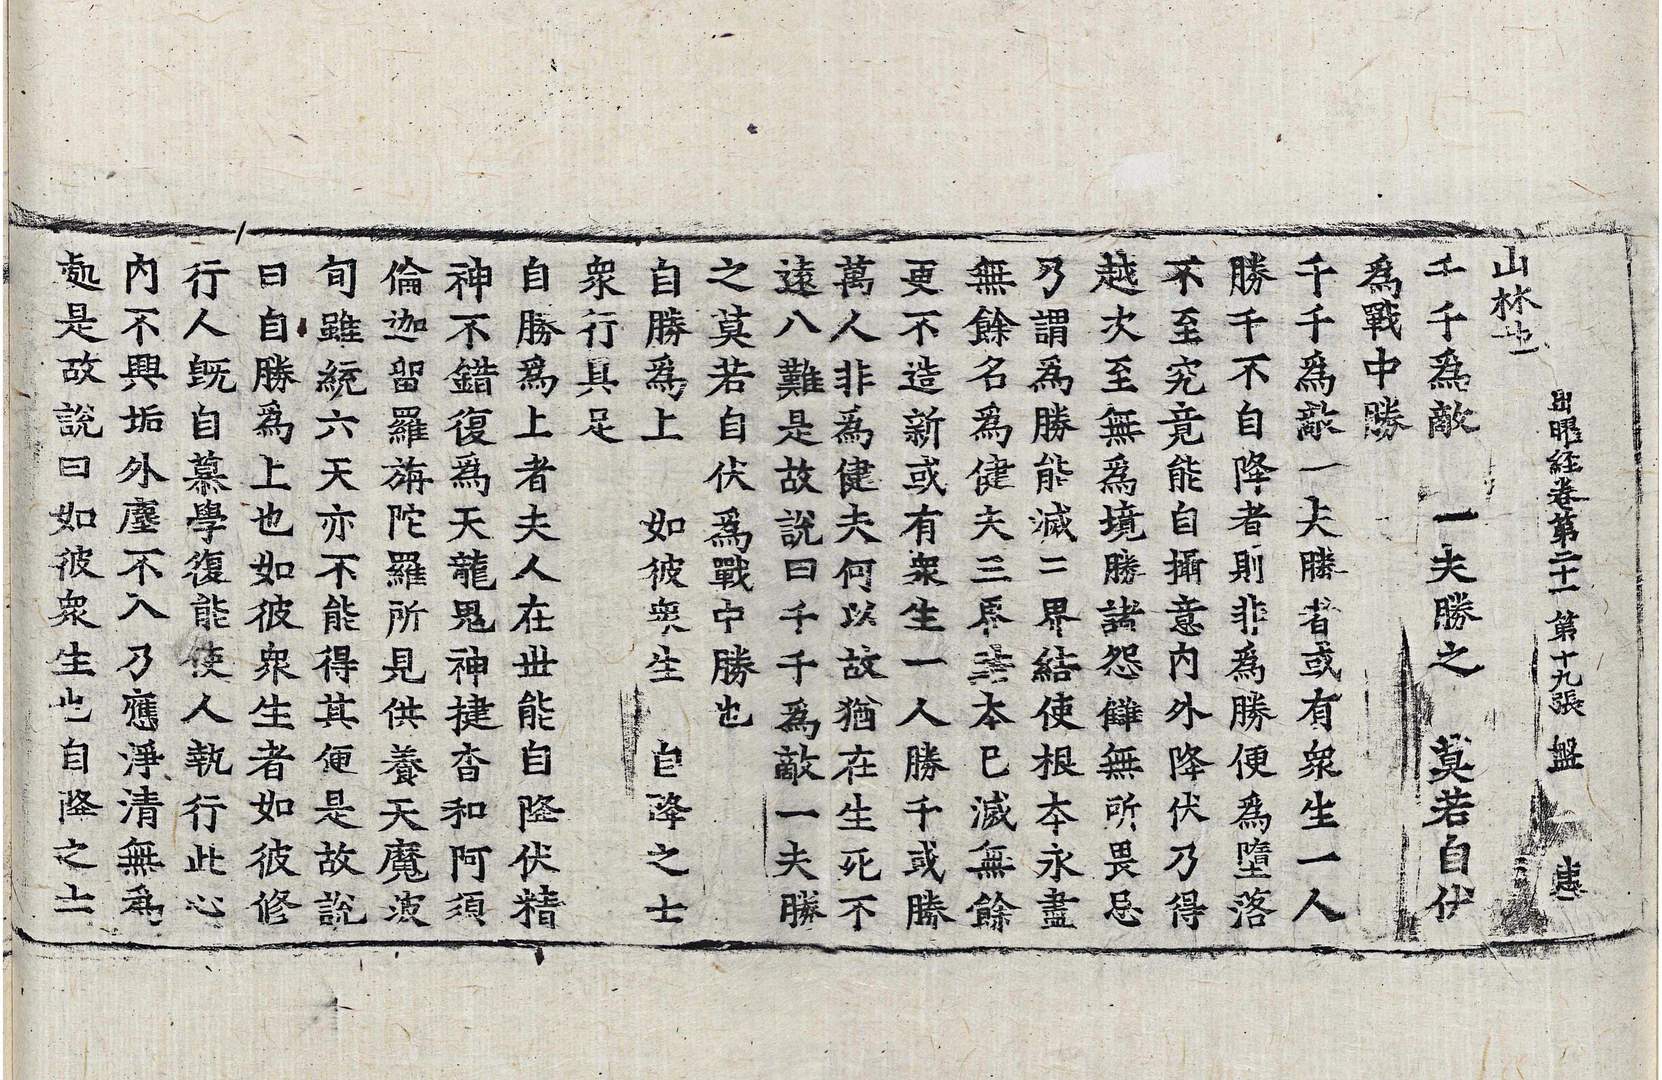 出曜經卷第二十一 第十九張 盤
山林也
千千爲敵 一夫勝之 莫若自伏
爲戰中勝
千千爲敵一夫勝者或有衆生一人
勝千不自降者則非爲勝便爲墮落
不至究竟能自攝意內外降伏乃得
越次至無爲境勝諸怨讎無所畏忌
乃謂爲勝能滅三界結使根本永盡
無餘名爲健夫三惡本已滅無餘
更不造新或有衆生一人勝千或勝
萬人非爲健夫何以故猶在生死不
遠八難是故說曰千千爲敵一夫勝
之莫若自伏爲戰中勝也
自勝爲上 如彼衆生 自降之士
衆行具足
自勝爲上者夫人在世能自降伏精
神不錯復爲天龍鬼神揵沓和阿須
倫迦留羅旃陀羅所見供養天魔波
旬雖統六天亦不能得其便是故說
曰自勝爲上也如彼衆生者如彼修
行人旣自慕學復能使人執行此心
內不興垢外塵不入乃應淨清無爲
處是故說曰如彼衆生也自降之士